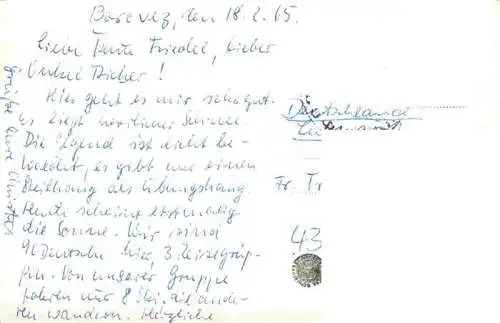 Borovez, den 18.2.65.
Liebe Tante Friedel, lieber
Onkel Richer!
Hier geht es mir sehr gut.
es liegt herrlicher Schnee.
Die Gegend ist nicht be-
waldet, es gibt nur einen
Steilhang als Übungshang.
Heute scheint erstmalig
die Sonne. Wir sind
90 Deutsche hier, 3 Reisegrup-
pen. Von unserer Gruppe
fahren nur 8 Ski, die ande-
ren wandern. Herzliche
Grüße Eure Christa
Deutschland
Fr. Tr
43